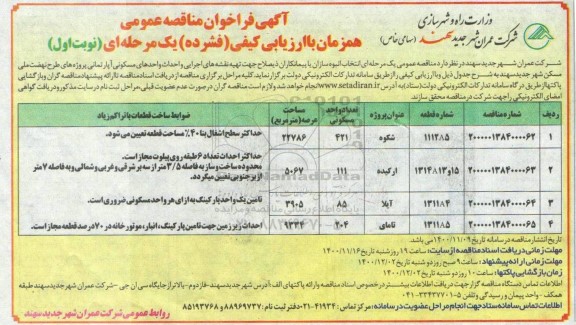 وزارت راه و شهرسازی
شرکت عمران شهر جدید سهند (سهامی خاص)
آگهی فراخوان مناقصه عمومی
همزمان با ارزیابی کیفی (فشرده) یک مرحله ای (نوبت اول)
شرکت عمران شهر جدید سهند در نظر دارد مناقصه عمومی یک مرحله ای انتخاب انبوه سازان یا پیمانکاران ذیصلاح جهت تهیه نقشه های اجرایی و احداث واحدهای مسکونی آپارتمانی پروژه های طرح نهضت ملی
مسکن شهر جدید سهند به شرح جدول ذیل و با ارزیابی کیفی را از طریق سامانه تدارکات الکترونیکی دولت برگزار نماید. کلیه مراحل برگزاری مناقصه از دریافت اسناد مناقصه تا ارائه پیشنهاد مناقصه گران و بازگشایی
پاکتها از طریق درگاه سامانه تدارکات الکترونیکی دولت (ستاد) به آدرس www.setadiran.ir انجام خواهد شد. لازم است مناقصه گران در صورت عدم عضویت قبلی، مراحل ثبت نام در سایت مذکور و دریافت گواهی
امضای الکترونیکی را جهت شرکت در مناقصه محقق سازند
ردیف | شماره مناقصه | شماره قطعه | عنوان پروژه | تعداد واحد مسکونی | مساحت عرصه (مترمربع) | ضوابط ساخت قطعات با تراکم زیر
۱ | ۲۰۰۰۰۰۱۳۸۴۰۰۰۰۶۲ | ۱۱۱۲۸۵ | شکوه | ۴۲۱ | ۲۲۷۸۶ | حداکثر سطح اشغال بنا ۴۰٪ مساحت قطعه تعیین می شود.
۲ | ۲۰۰۰۰۰۱۳۸۴۰۰۰۰۶۳ | ۱۵و۱۳۱۴۸۱۳ | ارکیده | ۱۱۱ | ۵۰۶۷ | حداکثر احداث تعداد ۶ طبقه روی پیلوت مجاز است.
محدوده ساخت و ساز به فاصله ۳/۵ متر از سه بر شرقی و غربی و شمالی و به فاصله ۷ متر
از بر جنوبی تعیین میگردد.
۳ | ۲۰۰۰۰۰۱۳۸۴۰۰۰۰۶۴ | ۱۳۱۱۸۴ | آیلا | ۸۵ | ۳۹۰۵ | تامین یک واحد پارکینگ به ازای هر واحد مسکونی ضروری است.
۴ | ۲۰۰۰۰۰۱۳۸۴۰۰۰۰۶۵ | ۱۳۱۱۸۵ | تامای | ۲۰۴ | ۹۳۳۴ | احداث زیرزمین جهت تامین پارکینگ، انبار، موتورخانه در ۷۰ درصد قطعه مجاز است.
تاریخ انتشار مناقصه در سامانه تاریخ ۱۴۰۰/۱۱/۰۹ می باشد.
مهلت زمانی دریافت اسناد مناقصه از سایت: ساعت ۱۹ روز شنبه تاریخ ۱۴۰۰/۱۱/۱۶
مهلت زمانی ارائه پیشنهاد: ساعت ۹ صبح روز دوشنبه تاریخ ۱۴۰۰/۱۲/۰۲
زمان بازگشایی پاکتها: ساعت ۱۰ روز دوشنبه تاریخ ۱۴۰۰/۱۲/۰۲
اطلاعات تماس دستگاه مناقصه گزار جهت دریافت اطلاعات بیشتر در خصوص اسناد مناقصه و ارائه پاکتهای الف: آدرس شهر جدید سهند - فاز دوم - بالاتر از جایگاه سی ان جی - شرکت عمران شهر جدید سهند طبقه
همکف - واحد پیمان و رسیدگی و تلفن ۵-۳۳۴۳۷۷۰۱-۰۴۱
اطلاعات تماس سامانه ستاد جهت انجام مراحل عضویت در سامانه: مرکز تماس ۴۱۹۳۴-۰۲۱ دفتر ثبت نام ۸۸۹۶۹۷۳۷ و ۸۵۱۹۳۷۶۸
روابط عمومی شرکت عمران شهر جدید سهند